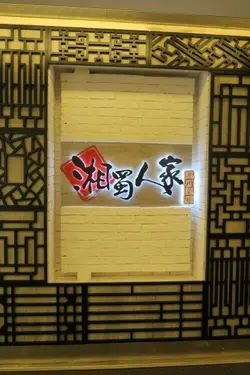 湘蜀人家